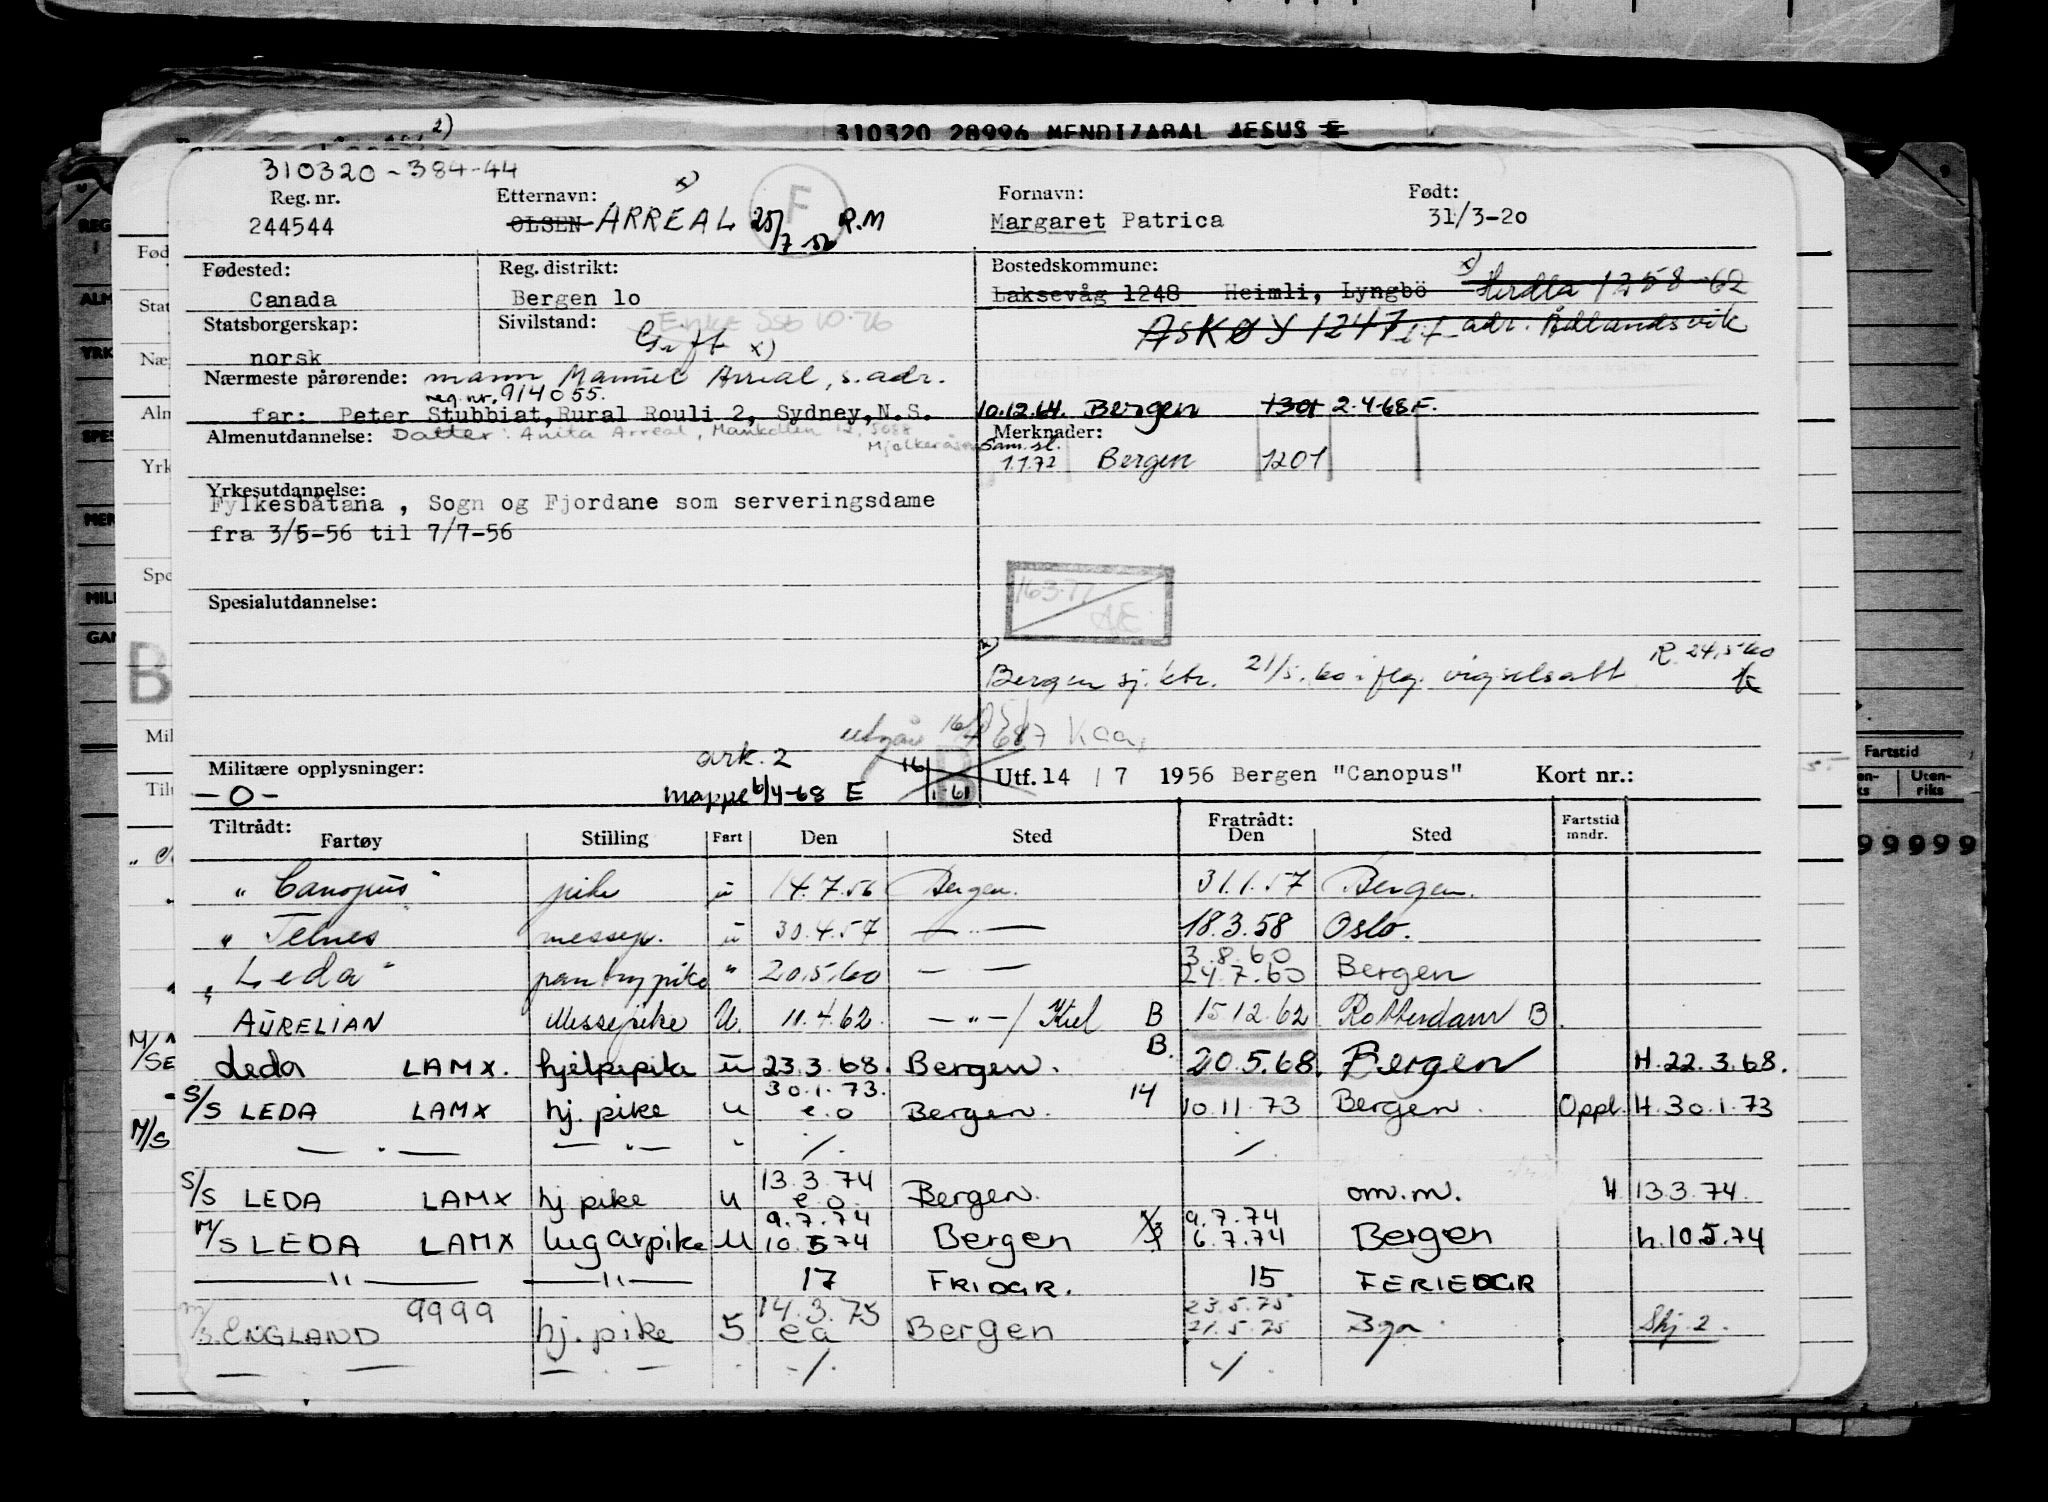 310320 28996 MENDIZABAL JESUS E
2)
310320-384-44
Reg. nr.
244544
Etternavn: x)
OLSEN ARREAL 25/7 56 F R.M
Fornavn:
Margaret Patrica
Født:
31/3-20
Fødested:
Canada
Reg. distrikt:
Bergen lo
Bostedskommune:
Laksevåg 1248 Heimli, Lyngbö x) Herdla 1258-62
ASKØY 1247 adr. Ådlandsvik
Statsborgerskap:
norsk
Sivilstand: Enke 10-76
Gift x)
Nærmeste pårørende: mann Manuel Arreal, s. adr.
reg. nr. 914055.
far: Peter Stubbiat, Rural Rouli 2, Sydney, N.S.
10.12.64. Bergen 1301 2.4.68 E.
Almenutdannelse: Datter: Anita Arreal, 12, 5088
Mjølkeråen
Merknader:
Sam. sl.
1.1.72 Bergen 1201
Yrkesutdannelse:
Fylkesbåtana , Sogn og Fjordane som serveringsdame
fra 3/5-56 til 7/7-56
163.77
AE
Spesialutdannelse:
x)
Bergen sj. ktr. 21/5.60 i flg. vigselsatt R. 24.5.60
utgår 16/
Militære opplysninger:
-0-
ark. 2
mappe 6/4-68 E
16/1 61
B
Utf. 14 / 7 1956 Bergen "Canopus" Kort nr.:
Tiltrådt: Fratrådt:
Fartøy Stilling Fart Den Sted Den Sted Fartstid mndr.
"Canopus" pike u 14.7.56 Bergen. 31.1.57 Bergen.
" Telnes " messep. u 30.4.57 — " — 18.3.58 Oslo.
3.8.60
"Leda" pantrypike " 20.5.60 — — 24.7.60 Bergen
AURELIAN Messepike U 11.4.62. — " — / Kiel B 15.12.62 Rotterdam B
Leda LAMX. hjelpepike u 23.3.68. Bergen. B. 20.5.68. Bergen H. 22.3.68.
30.1.73.
S/S LEDA LAMX hj. pike u e.o Bergen. 14 10.11.73 Bergen. Oppl. H. 30.1.73
— " — — " — " ./. ./.
13.3.74
S/S LEDA LAMX hj pike u e.o. Bergen. om.m. H 13.3.74.
9.7.74 9.7.74
M/S LEDA LAMX lugarpike U 10.5 74 Bergen 6.7.74 Bergen h. 10.5.74
— " — — " — 17 FRIDGR. 15 FERIEDGR
14.3.75 23.5.75
M/S. ENGLAND 9999 hj. pike 5 ea Bergen 21.5.75 Bgn. Skj. 2.
— — — — ./. ./.
Fød
Stat
Næ
Alm
Yrk
Spe
B
Mil
Tilt
M/S
M/S
REG
ALM
YRK
SPES
MER
MILI
GAN
Fartstid
Innenriks Utenriks
99999